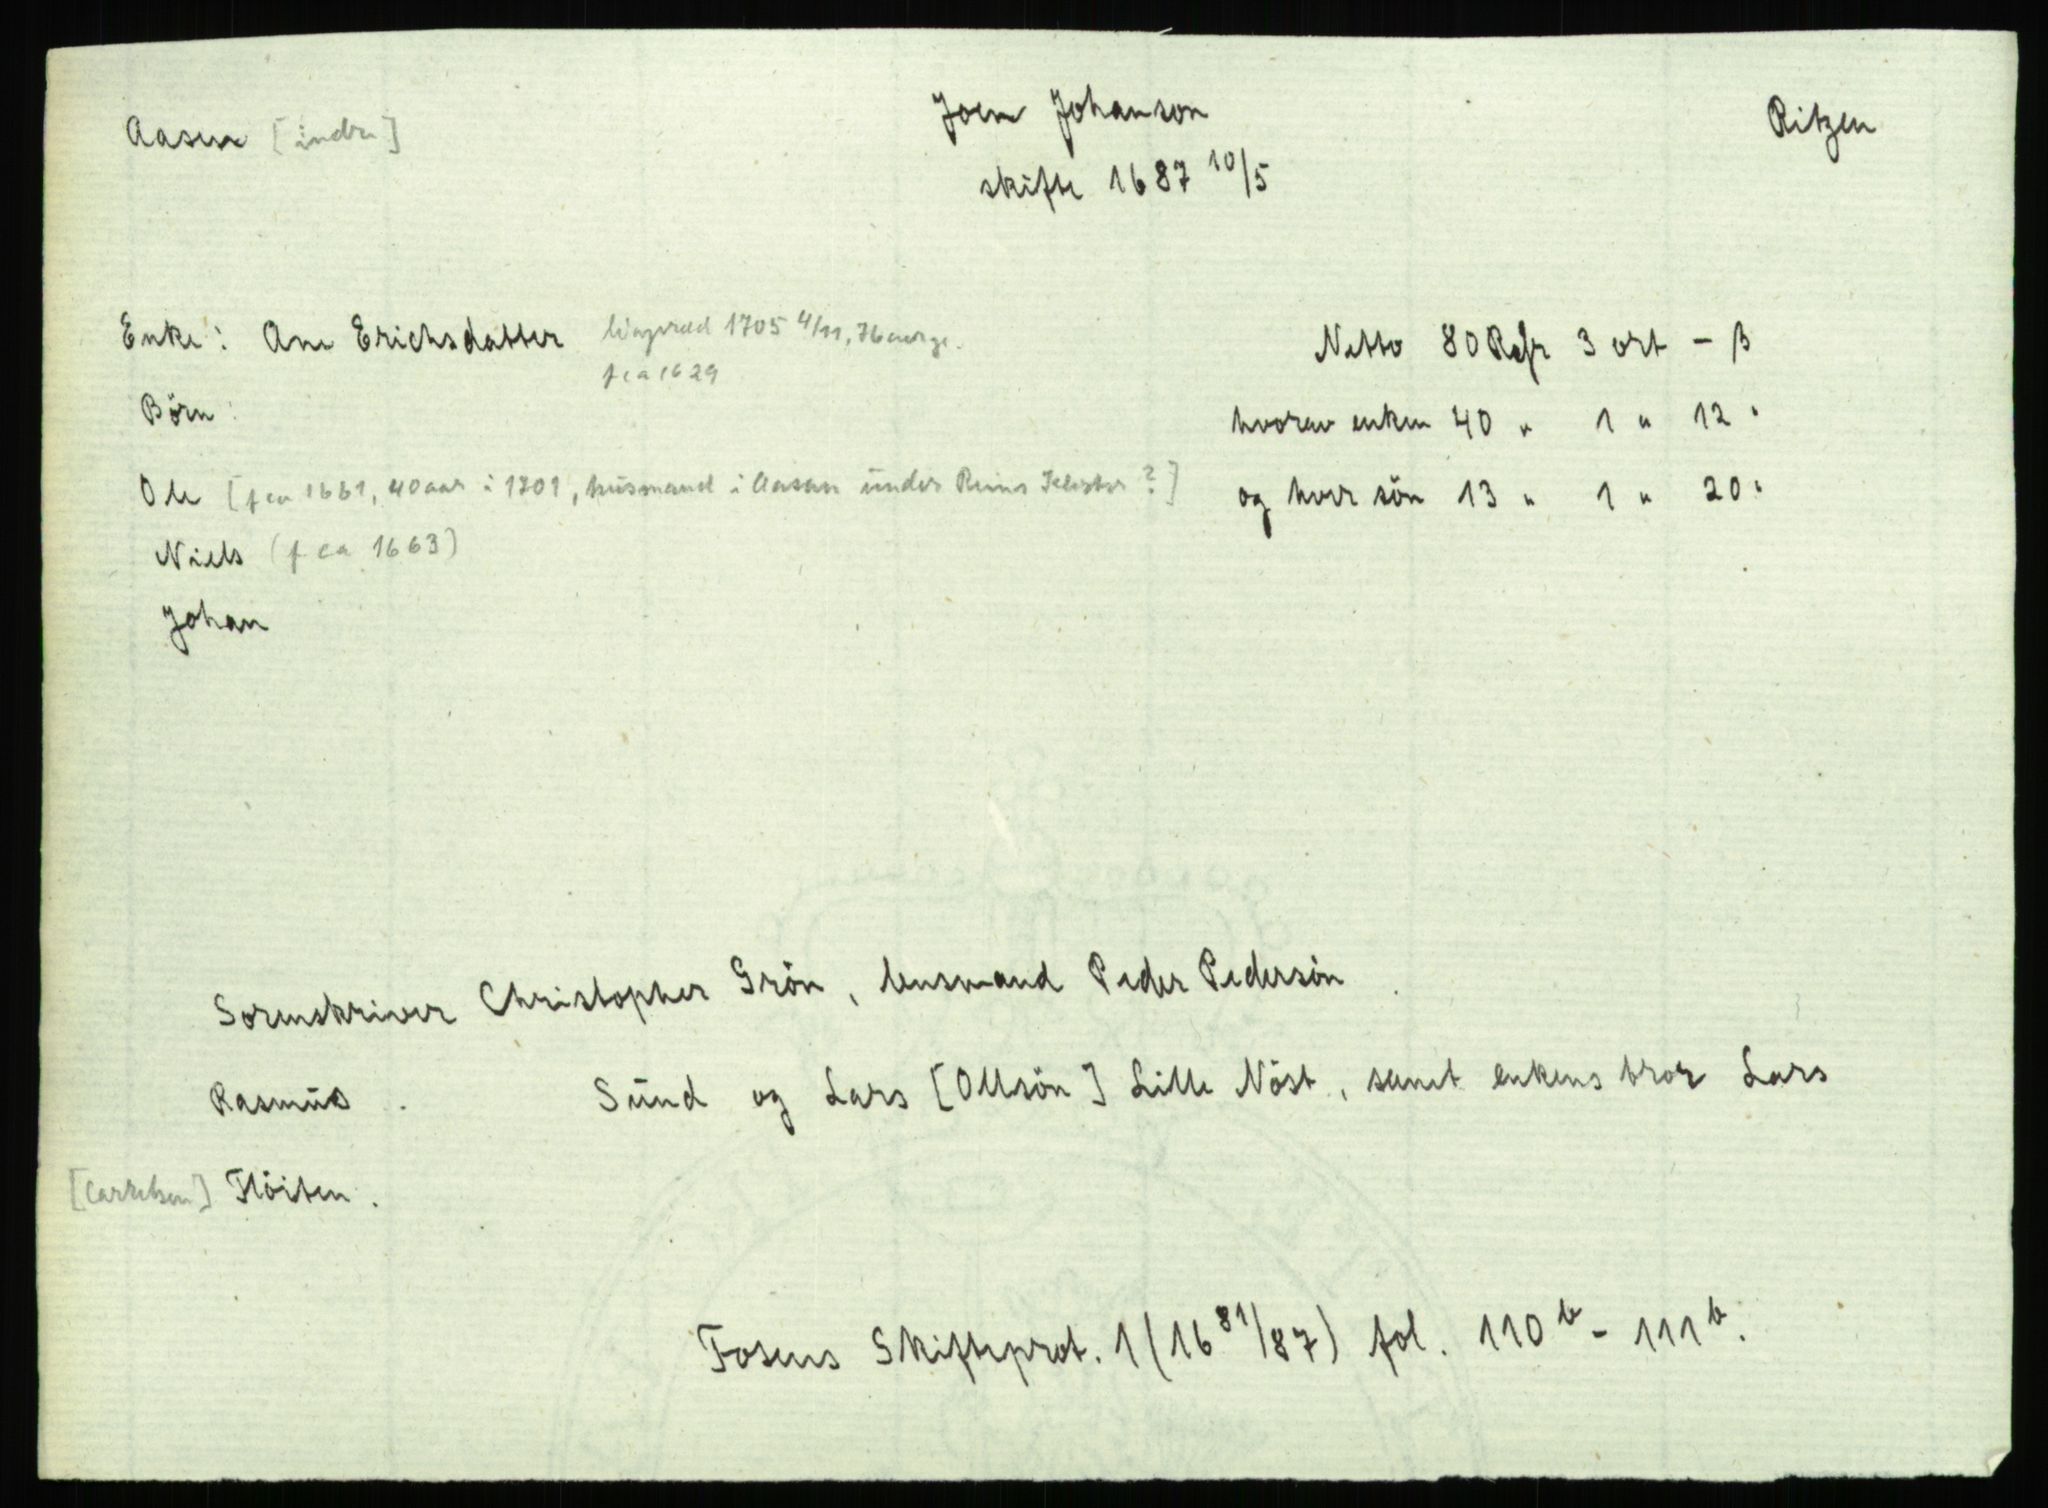 Aasen [indre]
Joen Johanson
Ritzen
skifte 1687 10/5
Enke: Ane Erichsdatter begraved 1705 4/11, 76 aar.
f ca 1629
Netto 80 Rdr 3 ort - β
Børn:
hvorav enken 40 " 1 " 12 "
Ole [f ca 1661, 40 aar i 1701, husmand i Aasan under Reins Kloster?]
og hver søn 13 " 1 " 20 "
Niels (f ca 1663)
Johan
Sorenskriver Christopher Grön, lensmand Peder Pedersön
Rasmus . Sund og Lars [Ollsön] Lille Nöst, samt enkens bror Lars
[Carlsen] Flöiten.
Fosens Skifteprot. 1 (16 81/87) fol. 110 b - 111 b.